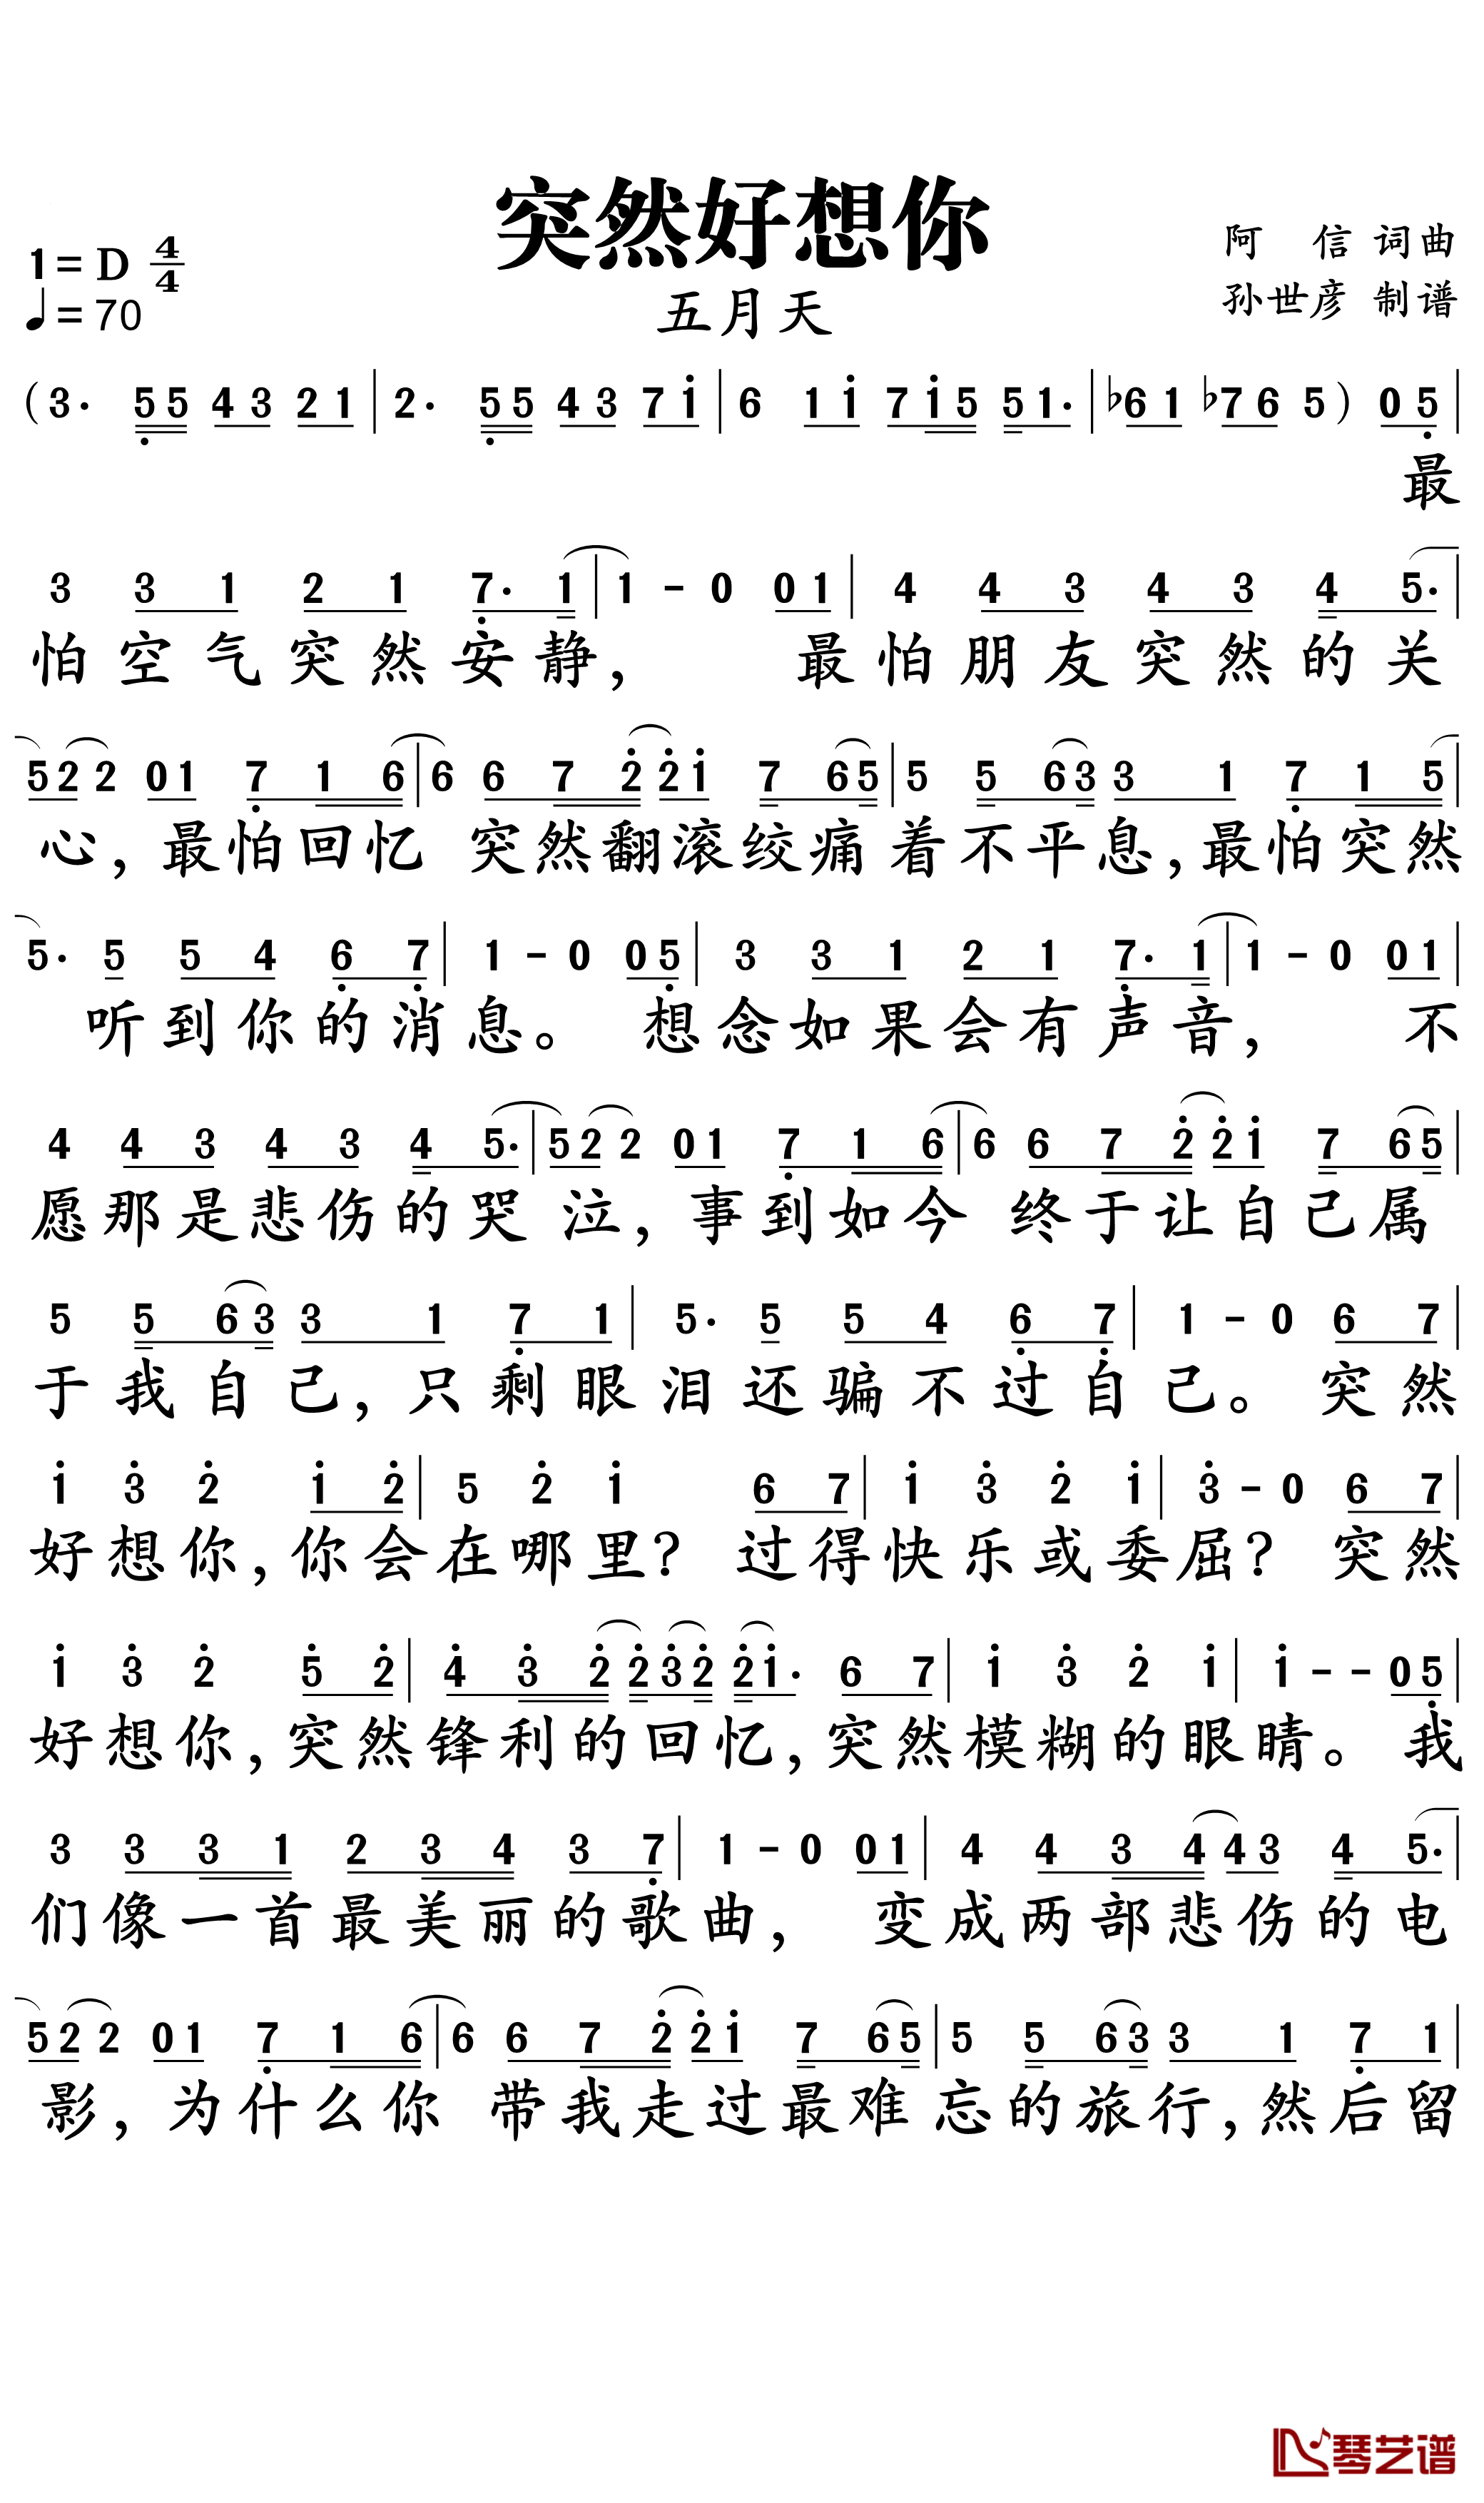 突然好想你
1=D 4/4
阿 信 词曲
♩=70
五月天
孙世彦 制谱
(3· 55 43 21 | 2· 55 43 7i | 6 1i 7i5 51· | ♭61 ♭76 5) 05 |
最
3 31 21 7·1 | 1 - 0 01 | 4 43 43 45· |
怕空气突然安静, 最怕朋友突然的关
522 01 716 | 6 672 2i 765 | 5 563 31 715 |
心,最怕回忆 突然翻滚绞痛着不平息,最怕突然
5· 5 54 67 | 1 - 0 05 | 3 31 21 7·1 | 1 - 0 01 |
听到你的消息。 想念如果会有声音, 不
4 43 43 45· | 522 01 716 | 6 672 2i 765 |
愿那是悲伤的哭泣,事到如今 终于让自己属
5 563 31 71 | 5· 5 54 67 | 1 - 0 67 |
于我自己,只剩眼泪还骗不过自己。突然
i 3 2 i2 | 5 2 i 67 | i 3 2 i | 3 - 0 67 |
好想你,你会在哪里?过得快乐或委屈?突然
i 3 2 52 | 432 232 2i· 67 | i 3 2 i | i - - 05 |
好想你,突然锋利的回忆,突然模糊的眼睛。我
3 331 234 37 | 1 - 0 01 | 4 434 43 45· |
们像一首最美丽的歌曲, 变成两部悲伤的电
522 01 716 | 6 672 2i 765 | 5 563 31 71 |
影,为什么你 带我走过最难忘的旅行,然后留
琴艺谱